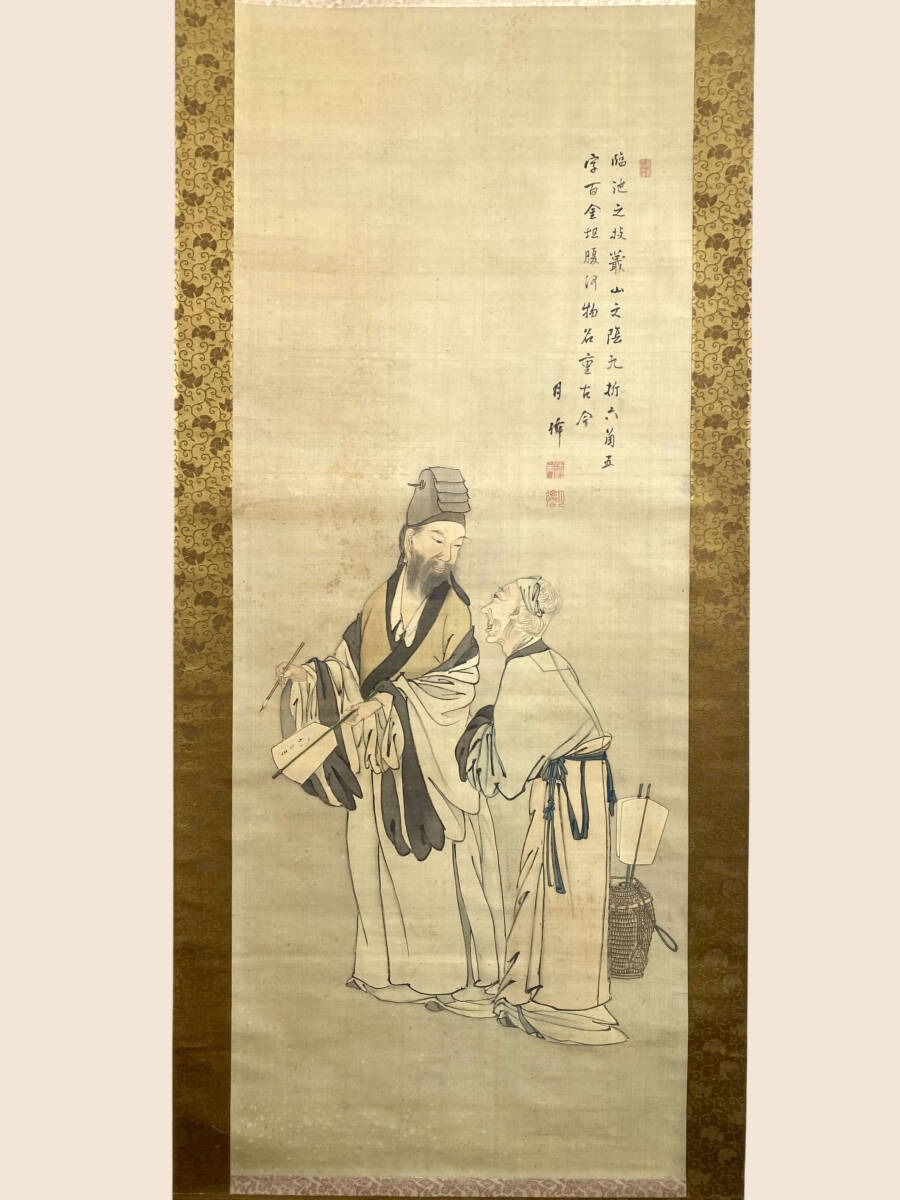 臨池之技蕺山之陰九折六角五
字百金坦腹何物名重古今
月